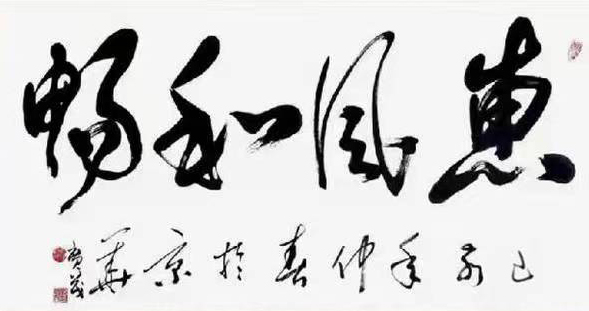 惠風和暢
己亥年仲春於京華